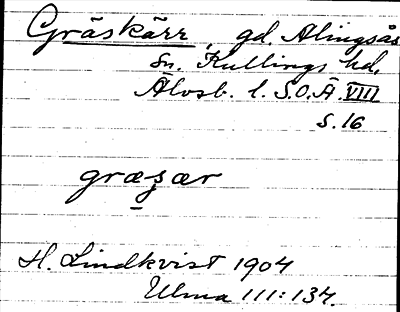 Gräskärr, gd. Alingsås
sn. Kullings hd.
Älvsb. l. S.O.Ä. VIII
s. 16
græʂær
H. Lindkvist 1904
Ulma 111:134.